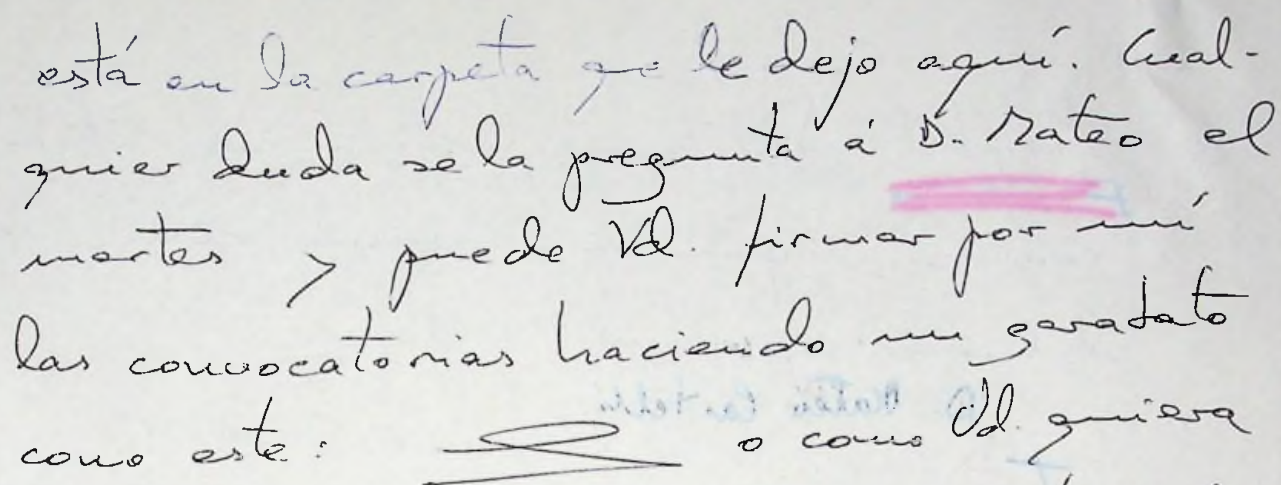 está en la carpeta que le dejo aquí. Cual-
quier duda se la pregunta á D. Mateo el
martes y puede Vd. firmar por mí
las convocatorias haciendo un garabato
como este: o como Vd. quiera